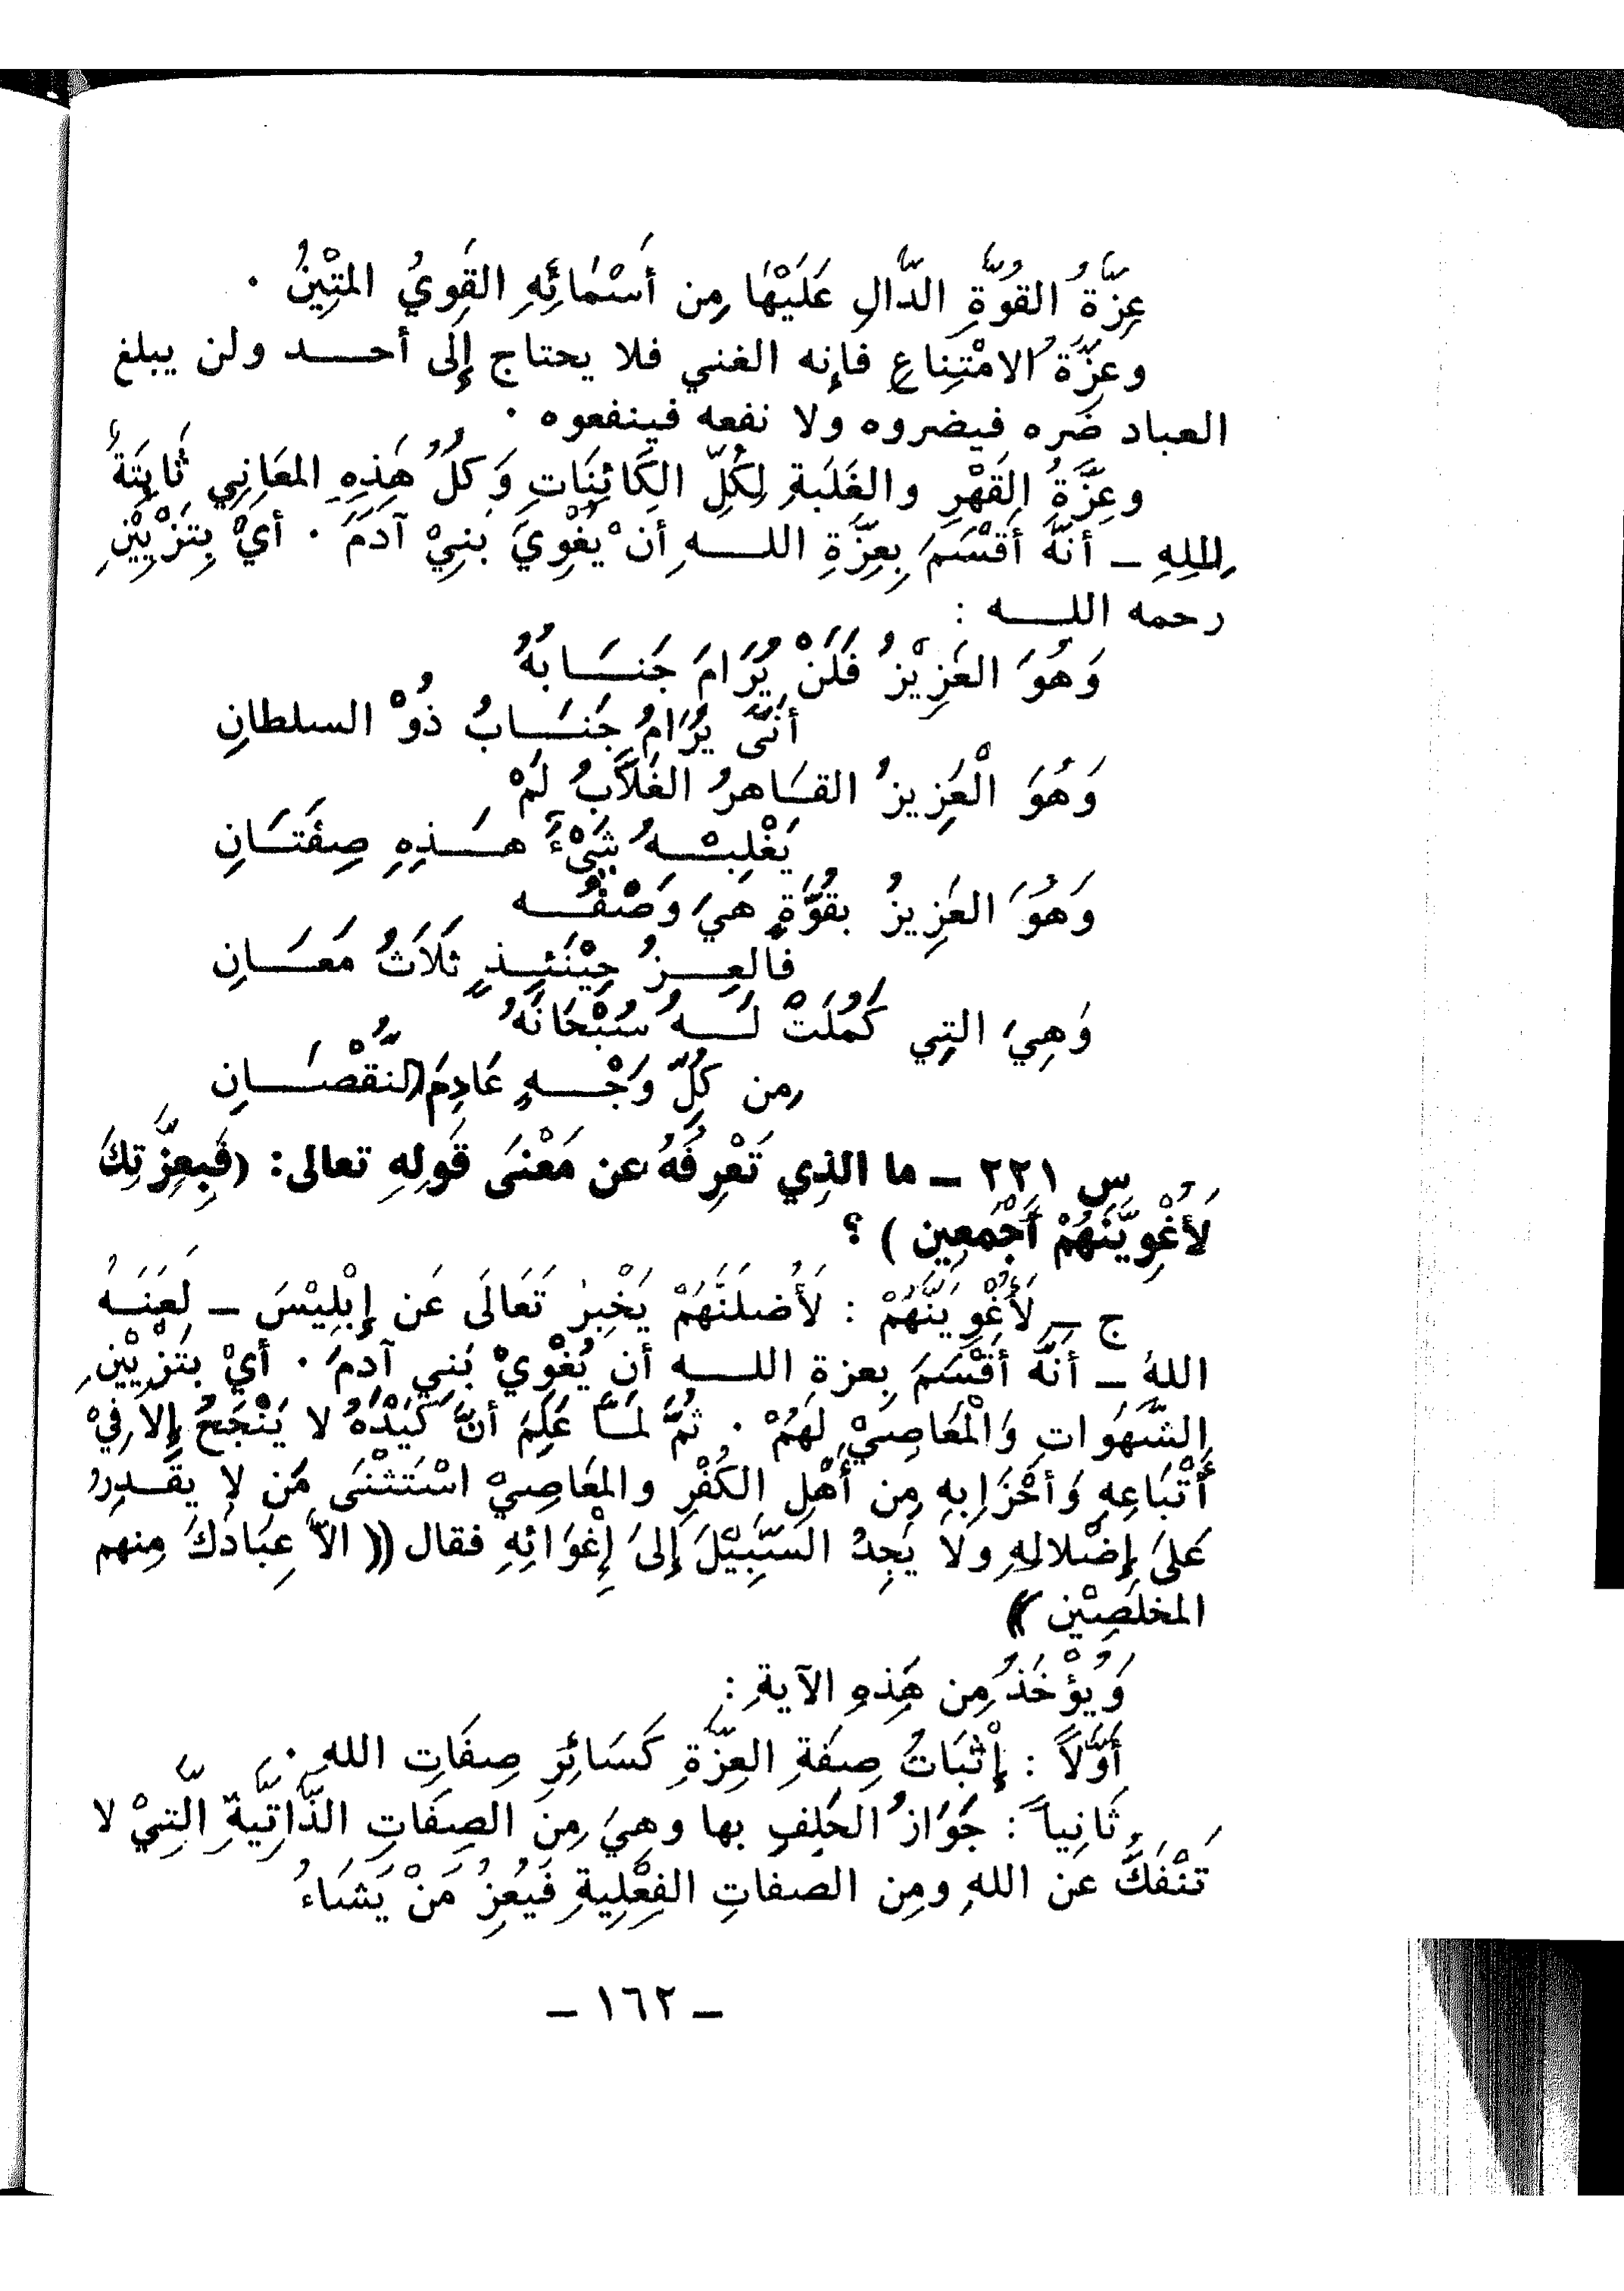 عِزَّةُ القُوَّةِ الدَّالِ عَلَيْهَا مِن أَسْمَائِهِ القَوِيُ المَتِيْنُ .
وعِزَّةُ الامْتِناعِ فإنه الغني فلا يحتاج إِلَى أحـــد ولن يبلغ
العباد ضَره فيضروه ولا نفعه فينفعوه .
وعِزَّةُ القَهْرِ والغَلَبةِ لِكُلِّ الكَائِنَاتِ وَكلُّ هَذِهِ المعَانِي ثَابِتَةُ
لِلهِ ــ أَنَّهُ أَقْسَمَ بِعِزَّةِ اللــــهِ أن يُغْوِيَ بَنِيْ آدَمَ . أيْ بِتَزْيِيْنِ
رحمه اللـــه :
وَهُوَ العَزِيْزُ فَلَنْ يُرَامَ جَنَـــابُهُ
أَنَّى يُرَامُ جَنَـــابُ ذُوْ السلطانِ
وَهُوَ الْعَزِيزُ القَـاهرُ الغَلَّابُ لَمْ
يَغْلِبْـــهُ شَيْءٌ هَـــذِهِ صِفَتَـــانِ
وَهُوَ العَزِيزُ بقُوَّةٍ هيَ وَصْفُـــه
فَالعِـــزُ حِيْنَئِـــذٍ ثَلَاثُ مَعَـــانِ
وَهِيَ التِي كَمُلَتْ لَـــهُ سُبْحَانَهُ
مِن كُلِّ وَجْـــهٍ عَادِمَ النُّقْصَـــانِ
س ٢٢١ ــ ما الذِي تَعْرِفَهُ عن مَعْنَى قَولِهِ تعالى: (فَبِعِزَّتِكَ
لَأُغْوِيَنَّهُمْ أَجْمَعِين ) ؟
ج ــ لَأُغْوِيَنَّهُمْ : لَأُضلَنَّهُمْ يَخْبِرُ تَعَالَى عَن إِبْلِيْسَ ــ لَعَنَـهُ
اللهُ ــ أَنَّهُ أَقْسَمَ بِعزةِ اللــــه أن يُغْوِيْ بَني آدمَ . أيْ بتَزْيِيْنِ
الشَّهَوَاتِ وَالْمَعَاصِيْ لَهُمْ . ثُمَّ لَمـَّا عَلِمَ أنَّ كَيْدَهُ لا يَنْجَحُ إِلا فِيْ
أَتْبَاعِهِ وَأَحْزَابِهِ مِن أَهْلِ الكُفْرِ والمعَاصِيْ اسْتَثْنَى مَن لا يقَـدِرُ
عَلىَ إِضْلالِهِ وَلَا يَجِدُ السَّبِيْلَ إِلىَ إِغْوَائِهِ فقال (( الاَّ عِبَادَكَ مِنهم
المخلَصِيْن ))
وَيُؤْخَذُ مِن هَذِهِ الآيةِ :
أَوَّلاً : إِثْبَاتُ صِفَةِ العِزَّةِ كَسَائِرِ صِفَاتِ اللهِ .
ثَانِياً : جَوَازُ الحَلِفِ بها وهيَ مِنَ الصِفَاتِ الذَّاتِيَّةِ الَّتِيْ لا
تَنْفَكَّ عن اللهِ ومِن الصفاتِ الفِعْلِيةِ فَيُعِزُ مَنْ يَشَاءُ
ــ ١٦٢ ــ